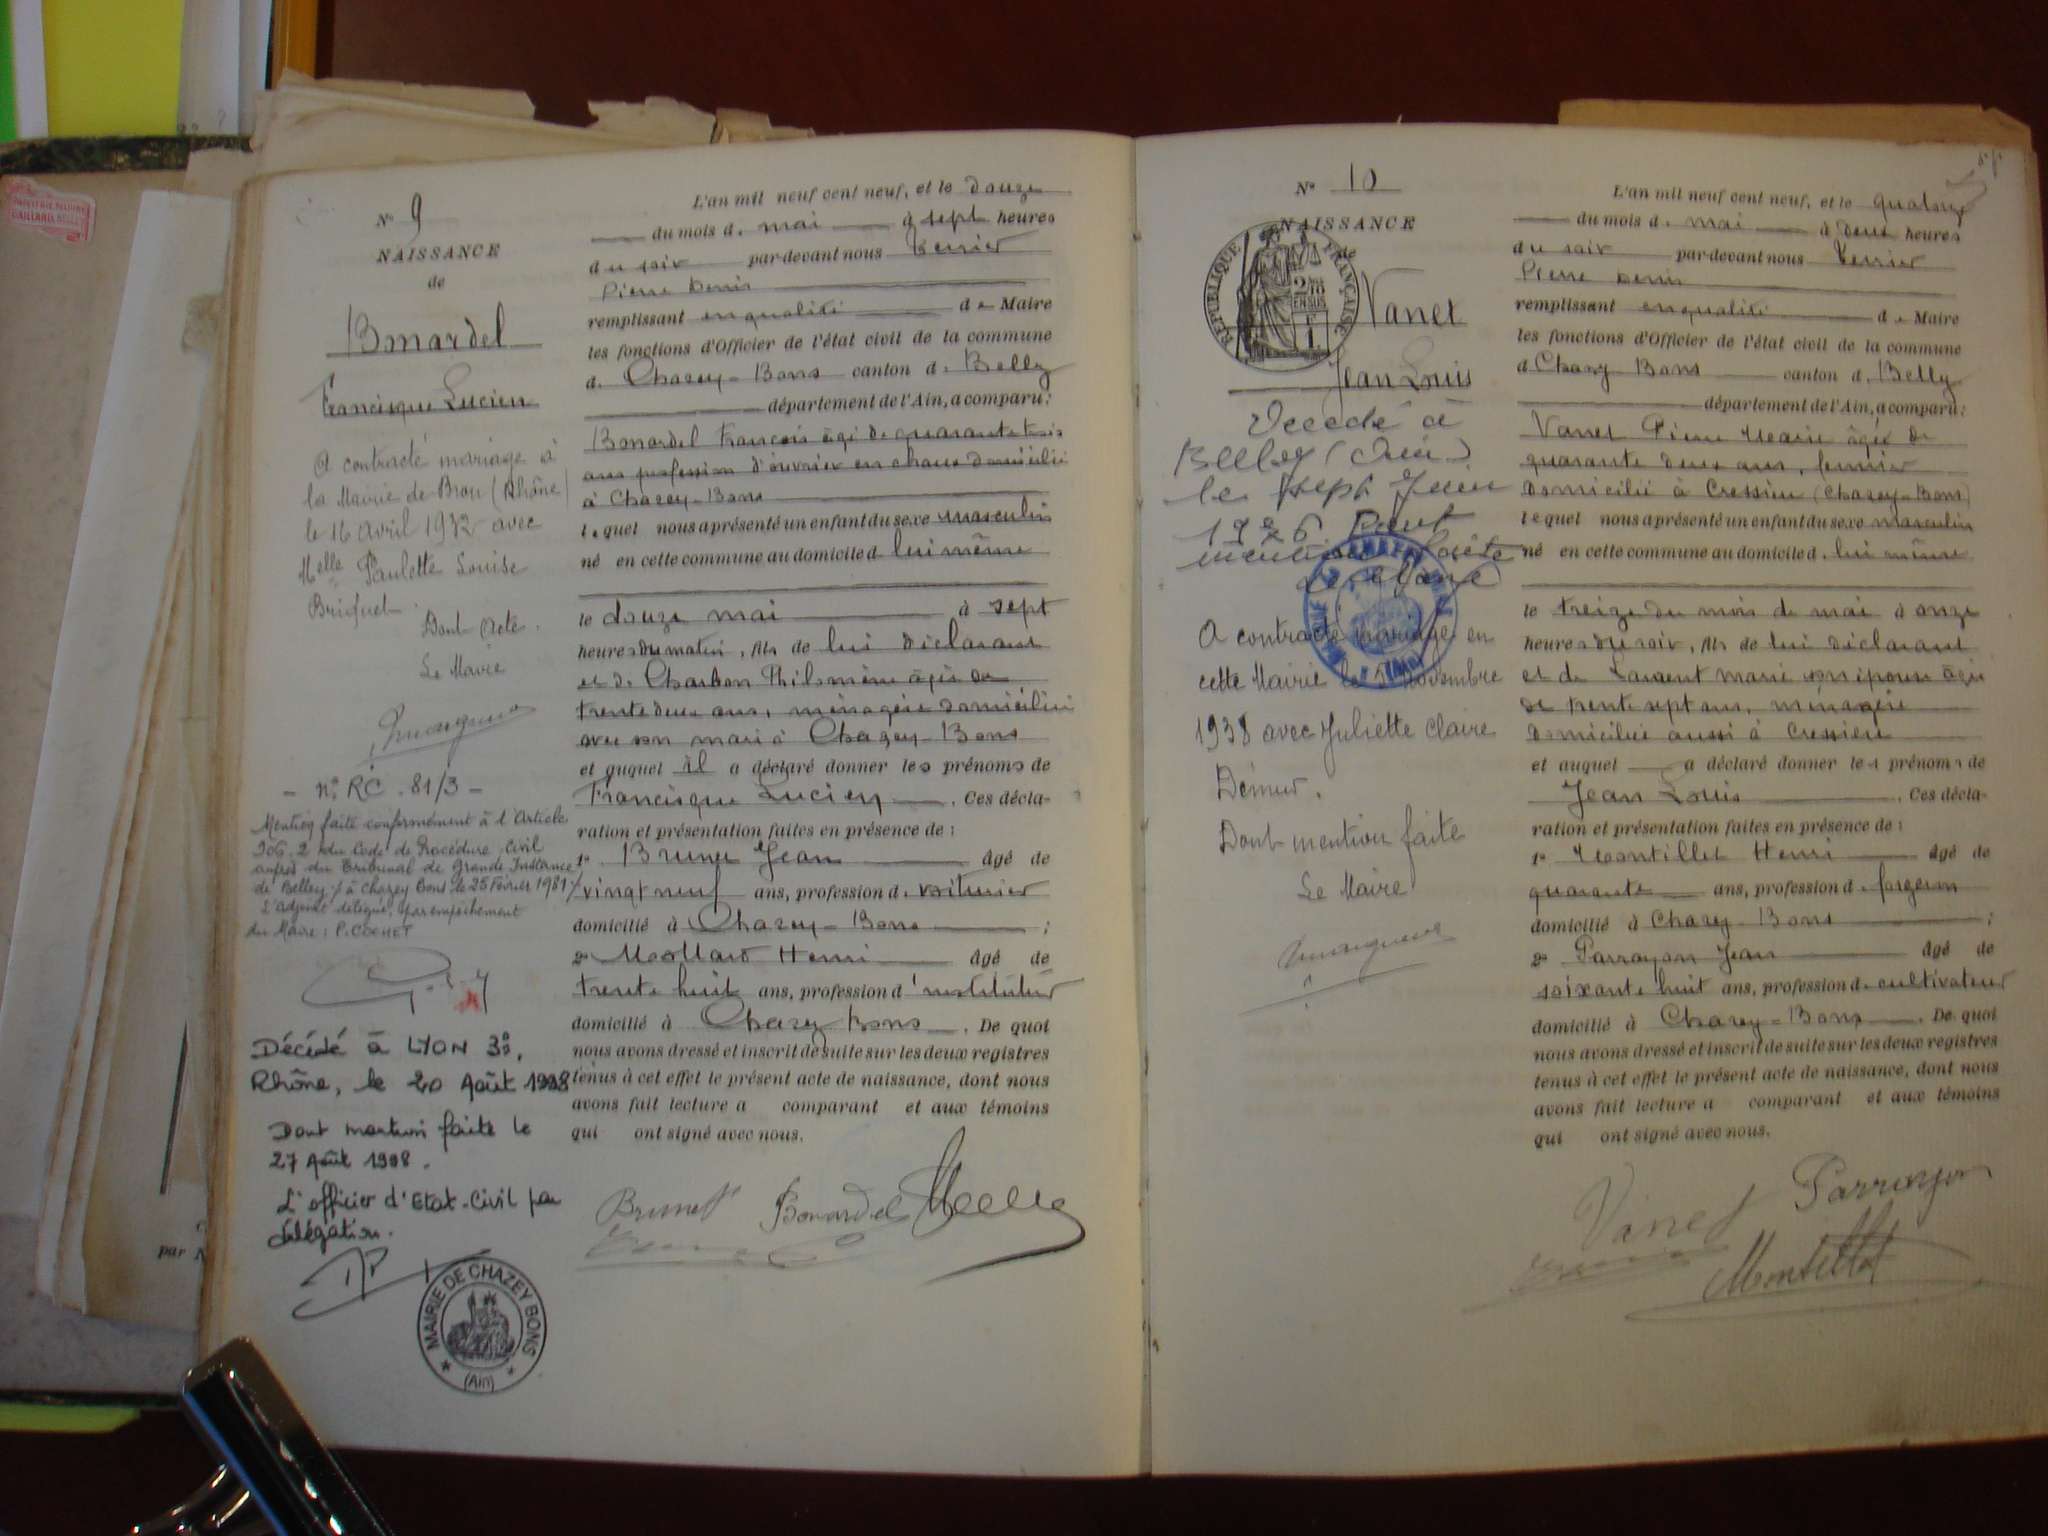 Nº 9
NAISSANCE
de
Bonardel
Francisque Lucien
A contracté mariage à
la Mairie de Bron (Rhône)
le 16 Avril 1932 avec
Melle Paulette Louise
Briquet
Dont Acte.
Le Maire
- nº RC. 81/3 -
Mention faite conformément à l'Article
du Code de Procédure Civil
auprès du Tribunal de Grande Instance
de Belley à Chazey Bons le 25 Février 1981
L'adjoint délégué, par empêchement
du Maire: P. COCHET
Décédé à LYON 3è,
Rhône, le 20 Août 1998
Dont mention faite le
27 Août 1998.
L'officier d'Etat-Civil par
délégation.
MAIRIE DE CHAZEY BONS
(Ain)
L'an mil neuf cent neuf, et le douze
du mois d. mai à sept heures
du soir par-devant nous
Pierre Denis
remplissant en qualité de Maire
les fonctions d'Officier de l'état civil de la commune
d. Chazey-Bons canton d. Belley
département de l'Ain, a comparu:
Bonardel François âgé de quarante trois
ans profession d'ouvrier en chaux domicilié
à Chazey-Bons
lequel nous a présenté un enfant du sexe masculin
né en cette commune au domicile d. lui même
le douze mai à sept
heures du matin, fils de lui déclarant
et de Charbon Philomène âgée de
trente deux ans, ménagère domiciliée
avec son mari à Chazey-Bons
et auquel il a déclaré donner les prénoms de
Francisque Lucien. Ces décla-
ration et présentation faites en présence de:
1º Brunet Jean âgé de
vingt neuf ans, profession d. voiturier
domicilié à Chazey-Bons;
2º Mollard Henri âgé de
trente huit ans, profession d'instituteur
domicilié à Chazey Bons. De quoi
nous avons dressé et inscrit de suite sur les deux registres
tenus à cet effet le présent acte de naissance, dont nous
avons fait lecture a comparant et aux témoins
qui ont signé avec nous.
Brunet Bonardel
Nº 10
NAISSANCE
de
RÉPUBLIQUE FRANÇAISE
2/10 EN SUS
Vanet
Jean Louis
Décédé à
Belley (Ain)
le sept
A contracté mariage en
cette Mairie le 5 Novembre
1938 avec Juliette Claire
Démur.
Dont mention faite
Le Maire
L'an mil neuf cent neuf, et le quatorze
du mois d. mai à deux heures
du soir par-devant nous
Pierre Denis
remplissant en qualité de Maire
les fonctions d'Officier de l'état civil de la commune
d. Chazey-Bons canton d. Belley
département de l'Ain, a comparu:
Vanet Pierre Marie âgé de
quarante deux ans, fermier
domicilié à Cressieu (Chazey-Bons)
lequel nous a présenté un enfant du sexe masculin
né en cette commune au domicile d. lui même
le treize du mois de mai à onze
heures du soir, fils de lui déclarant
et de Laurent Marie son épouse âgée
de trente sept ans, ménagère
domiciliée aussi à Cressieu
et auquel a déclaré donner les prénoms de
Jean Louis. Ces décla-
ration et présentation faites en présence de:
1º Montillet Henri âgé de
quarante ans, profession d. forgeron
domicilié à Chazey-Bons;
2º Parrayon Jean âgé de
soixante huit ans, profession d. cultivateur
domicilié à Chazey-Bons. De quoi
nous avons dressé et inscrit de suite sur les deux registres
tenus à cet effet le présent acte de naissance, dont nous
avons fait lecture a comparant et aux témoins
qui ont signé avec nous.
Vanet
Montillet